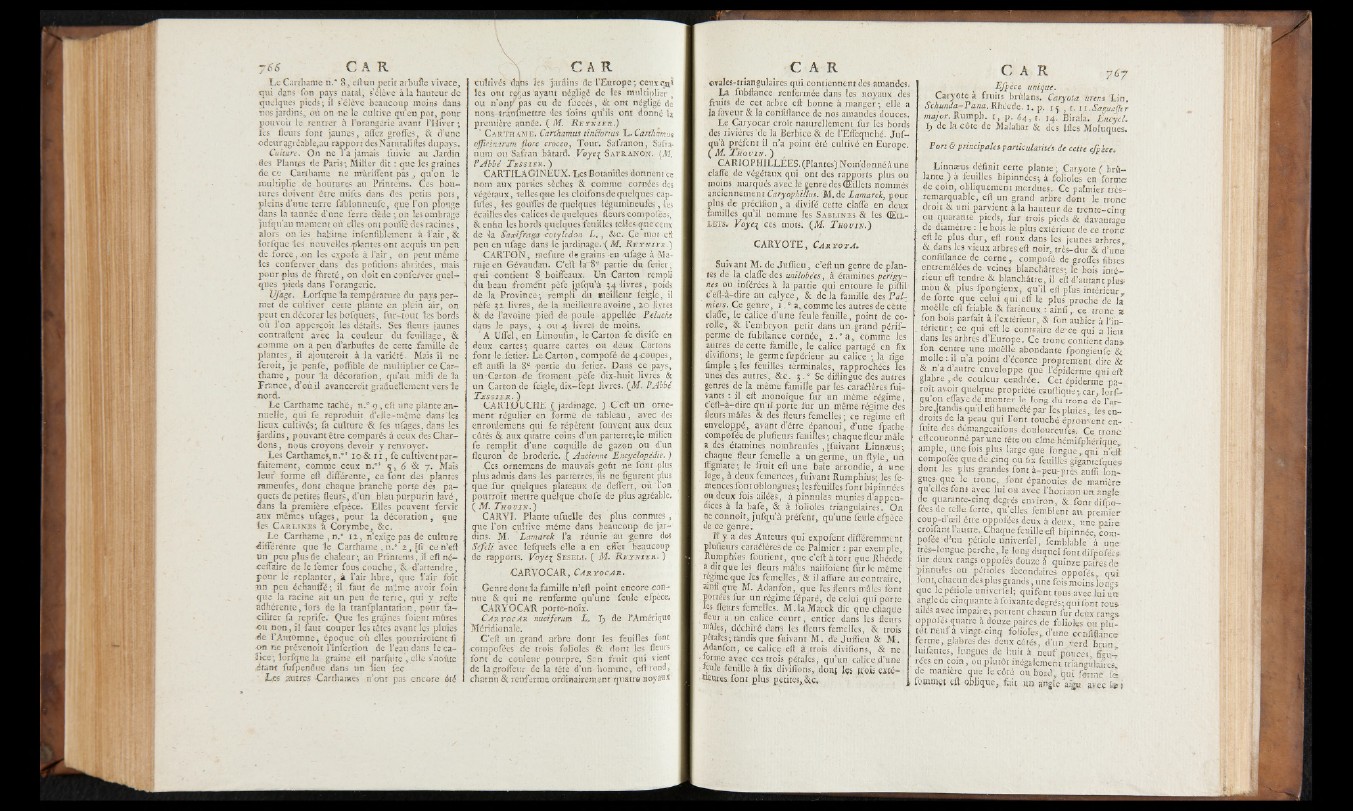 766 CAR
Le Carthame n.° 8, est un petit arbuste vivace,
qui dans son pays natal, s'élève à la hauteur de
quelques pieds; il s'élève beaucoup moins dans
nos jardins, où on ne le cultive qu'en pot, pour
pouvoir le rentrer à l'orangerie avant l'Hiver;
ses fleurs sont jaunes, assez grosses, & d'une
odeur agréable, au rapport des Naturalistes du pays.
Culture. On ne l'a jamais suivie au Jardin
des Plantes de Paris; Miller dit : que les graines
de ce Carthame ne mûrissent pas, qu'on le
multiplie de boutures au Printems. Ces boutures
doivent être mises dans des petits pots,
pleins d'une terre sablonneuse, que l'on plonge
dans la tannée d'une serre tiède; on les ombrage
jusqu'au moment où elles ont poussé des racines,
alors on les habitue insensiblement à l'air, &
lorsque les nouvelles plantes ont acquis un peu
de force, on les expose à l'air, on peut même
les conserver dans des positions abritées, mais
pour plus de sûreté, on doit en conserver quelques
pieds dans l'orangerie.
Usage. Lorsque la température du pays permet
de cultiver cette plante en plein air, on
peut en décorer les bosquets, sur-tout les bords
où l'on apperçoit les détails. Ses fleurs jaunes
contrastent avec la couleur du feuillage, &
comme on a peu d'arbustes de cette famille de
plantes, il ajouteroit à la variété. Mais il ne
seroit, je pense, possible de multiplier ce Carthame,
pour la décoration, qu'au midi de la
France, d'où il avanceroit graduellement vers le
nord.
Le Carthame tache, n.° 9, est une plante annuelle,
qui se reproduit d'elle-même dans les
lieux cultivés; sa culture & ses usages, dans les
jardins, pouvant être comparés à ceux des Chardons,
nous croyons devoir y renvoyer.
Les Carthames, n.os 10 & 11, se cultivent parfaitement,
comme ceux n.os 5, 6 & 7. Mais
leur forme est différente, ce sont des plantes
rameuses, dont chaque branche porte des paquets
de petites fleurs, d'un bleu purpurin lavé,
dans la première espèce. Elles peuvent servir
aux mêmes usages, pour la décoration, que
les CARLINES à Corymbe, &c.
Le Carthame, n.° 12, n'exige pas de culture
différente que le Carthame, n.° 2, si ce n'est
un peu plus de chaleur; au Printems, il est nécessaire
de le semer sous couche, & d'attendre,
pour le replanter, à l'air libre, que l'air soit
un peu échauffé; il faut de même avoir soin
que la racine ait un peu de terre, qui y reste
adhérente, lors de la transplantation, pour faciliter
sa reprise. Que les graines soient mûres
ou non, il faut couper les têtes avant les pluies
de l'Automne, époque où elles pourriroient si
on ne prévenoit l'insertion de l'eau dans le calice;
lorsque la graine est parfaite, elle s'aoûte
étant suspendue dans un lieu sec
Les autres Carthames n'ont pas encore été
CAR
cultivés dans les jardins de l'Europe; ceux qui
les ont reçus ayant négligé de les multiplier,
ou n'ont pas eu de succès, & ont négligé de
nous transmettre des soins qu'ils ont donné la
première année. (M. REYNIER.)
CARTHAME. Carthamus tinctorius L. Carthamus
officinarum flore croceo, Tour. Safranon, Safranum
ou Safran bâtard. Voyez SAFRANON. (M.
l'Abbé TESSIER.)
CARTILAGINEUX. Les Botanistes donnent ce
nom aux parties sèches & comme cornées des
végétaux, telles que les cloisons de quelques capsules,
les gousses de quelques légumineuses, les
écailles des calices de quelques fleurs composées,
& enfin les bords quelques feuilles telles que ceux
de la Saxifraga cotyledon L., &c. Ce mot est
peu en usage dans le jardinage. (M. REYNIER.)
CARTON, mesure de grains en usage à Maruje
en Gévaudan. C'est la 8e partie du setier,
qui contient 8 boisseaux. Un Carton rempli
du beau froment pèse jusqu'à 34 livres, poids
de la Province; rempli du meilleur seigle, il
pèse 32 livres, de la meilleure avoine, 20 livres
& de l'avoine pied de poule appellée Pelache
dans le pays, 3 ou 4 livres de moins.
A Ussel, en Limousin, le Carton se divise en
deux cartes; quatre cartes ou deux Cartons
font le setier. Le Carton, composé de 4 coupes,
est aussi la 8e partie du setier. Dans ce pays,
un Carton de froment pèse dix-huit livres &
un Carton de seigle, dix-sept livres. (M. l'Abbé
TESSIER.)
CARTOUCHE (jardinage.) C'est un ornement
régulier en forme de tableau, avec des
enroulemens qui se répètent souvent aux deux
côtés & aux quatre coins d'un parterre; le milieu
se remplit d'une coquille de gazon ou d'un
fleuron de broderie. (Ancienne Encyclopédie.)
Ces ornemens de mauvais goût ne sont plus
plus admis dans les parterres, ils ne figurent plus
que sur quelques plateaux de dessert, où l'on
pourroit mettre quelque chose de plus agréable.
(M. THOUIN.)
CARVI. Plante usuelle des plus connues,
que l'on cultive même dans beaucoup de jardins.
M. Lamarck l'a réunie au genre des
Seseli avec lesquels elle a en effet beaucoup
de rapports. Voyez SESELI. (M. REYNIER.)
CARYOCAR, CARYOCAR.
Genre dont la famille n'est point encore connue
& qui ne renferme qu'une seule espèce.
CARYOCAR porte-noix.
CARYOCAR nuciferum L. ♄ de l'Amérique
Méridionale.
C'est un grand arbre dont les feuilles sont
composées de trois folioles & dont les fleurs
sont de couleur pourpre. Son fruit qui vient
de la grosseur de la tête d'un homme, est rond,
charnu & renferme ordinairement quatre noyaux
CAR
ovales-triangulaires qui contiennent des amandes.
La substance renfermée dans les noyaux des
fruits de cet arbre est bonne à manger; elle a
la saveur & la consistance de nos amandes douces.
Le Caryocar croît naturellement sur les bords
des rivières de la Berbice & de l'Essequebé. Jusqu'à
présent il n'a point été cultivé en Europe.
(M. THOUIN.)
CARIOPHILLÉES. (Plantes) Nom donné à une
classe de végétaux qui ont des rapports plus ou
moins marqués avec le genre des Œillets nommés
anciennement Caryophillus. M. de Lamarck, pour
plus de précision, a divisé cette classe en deux
familles qu'il nomme les SABLINES & les ŒILLETS.
Voyez ces mots. (M. THOUIN.)
CARYOTE, CARYOTA.
Suivant M. de Jussieu, c'est un genre de plantes
de la classe des unilobées, à étamines perigynes
ou insérées à la partie qui entoure le pistil
c'est-à-dire au calyce, & de la famille des Palmiers.
Ce genre, 1.° a, comme les autres de cette
classe, le calice d'une seule feuille, point de corolle,
& l'embryon petit dans un grand périsperme
de substance cornée, 2.° a, comme les
autres de cette famille, le calice partagé en six
divisions; le germe supérieur au calice; la tige
simple; les feuilles terminales, rapprochées les
unes des autres, &c. 3.° Se distingue des autres
genres de la même famille par les caractères suivants :
il est monoïque sur un même régime,
c'est-à-dire qu'il porte sur un même régime des
fleurs mâles & des fleurs femelles; ce régime est
enveloppé, avant d'être épanoui, d'une spathe
composée de plusieurs feuilles; chaque fleur mâle
a des étamines nombreuses, suivant Linnæus;
chaque fleur femelle a un germe, un style, un
stigmate; le fruit est une baie arrondie, à une
loge, à deux semences, suivant Rumphius; les semences
sont oblongues; les feuilles sont bipinnées
ou deux fois ailées, à pinnules munies d'appendices
à la base, & à folioles triangulaires. On
ne connoît, jusqu'à présent, qu'une seule espèce
de ce genre.
Il y a des Auteurs qui exposent différemment
plusieurs caractères de ce Palmier : par exemple,
Rumphius soutient, que c'est à tort que Rhéede
a dit que les fleurs mâles naissoient sur le même
régime que les femelles, & il assure au contraire,
ainsi que M. Adanson, que les fleurs mâles sont
portées sur un régime séparé, de celui qui porte
les fleurs femelles. M. la Marck dit que chaque
fleur a un calice court, entier dans les fleurs
mâles, déchiré dans les fleurs femelles, & trois
pétales; tandis que suivant M. de Jussieu & M.
Adanson, ce calice est à trois divisions, & ne
forme avec ces trois pétales, qu'un calice d'une
seule feuille à six divisions, dont les trois extérieures
sont plus petites, &c.
CAR 767
Espèce unique.
Caryote à fruits brûlans. Caryota urens Lin.
Schunda-Pana. Rhéede. 1, p. 15, t. 11. Saguaster
major. Rumph. 1, p. 64, t. 14. Birala. Encycl.
♄ de la côte de Malabar & des Isles Moluques.
Port & principales particularités de cette espèce.
Linnæus définit cette plante; Caryote (brûlante)
à feuilles bipinnées; à folioles en forme
de coin, obliquement mordues. Ce palmier très-
remarquable, est un grand arbre dont le tronc
droit & uni parvient à la hauteur de trente-cinq
ou quarante pieds, sur trois pieds & davantage
de diamètre : le bois le plus extérieur de ce tronc
est le plus dur, est roux dans les jeunes arbres,
& dans les vieux arbres est noir, très-dur & d'une
consistance de corne, composé de grosses fibres
entremêlées de veines blanchâtres; le bois intérieur
est tendre & blanchâtre, il est d'autant plus
mou & plus spongieux, qu'il est plus intérieur,
de sorte que celui qui est le plus proche de la
moëlle est friable & farineux : ainsi, ce tronc a
son bois parfait à l'extérieur, & son aubier à l'intérieur;
ce qui est le contraire de ce qui a lieu
dans les arbres d'Europe. Ce tronc contient dans
son centre une moëlle abondante spongieuse &
molle : il n'a point d'écorce proprement dite &
& n'a d'autre enveloppe que l'épiderme qui est
glabre, de couleur cendrée. Cet épiderme paroît
avoir quelque propriété caustique; car, lorsqu'on
essaye de monter le long du tronc de l'arbre,
tandis qu'il est humecté par les pluies, les endroits
de la peau qui l'ont touché éprouvent ensuite
des démangeaisons douloureuses. Ce tronc
est couronné par une tête ou cîme hémisphérique,
ample, une fois plus large que longue, qui n'est
composée que de cinq ou six feuilles gigantesques
dont les plus grandes sont à-peu-près aussi longues
que le tronc, sont épanouies de manière
qu'elles font avec lui ou avec l'horizon un angle
de quarante-cinq degrés environ, & sont disposées
de telle sorte, qu'elles semblent au premier
coup-d'œil être opposées deux à deux, une paire
croisant l'autre. Chaque feuille est bipinnée, composée
d'un pétiole universel, semblable à une
très-longue perche, le long duquel sont disposées
sur deux rangs opposés douze à quinze paires de
pinnules ou pétioles secondaires opposés, qui
sont, chacun des plus grands, une fois moins longs
que le pétiole universel; qui sont tous avec lui un
angle de cinquante à soixante degrés; qui sont tous
ailés avec impaire; portent chacun sur deux rangs
opposés quatre à douze paires de folioles ou plutôt
neuf à vingt-cinq folioles, d'une consistance
ferme, glabres des deux côtés, d'un verd brun,
luisantes, longues de huit à neuf pouces, figurées
en coin, ou plutôt inégalement triangulaires,
de manière que le côté ou bord, qui forme le
sommet est oblique, fait un angle aigu avec les